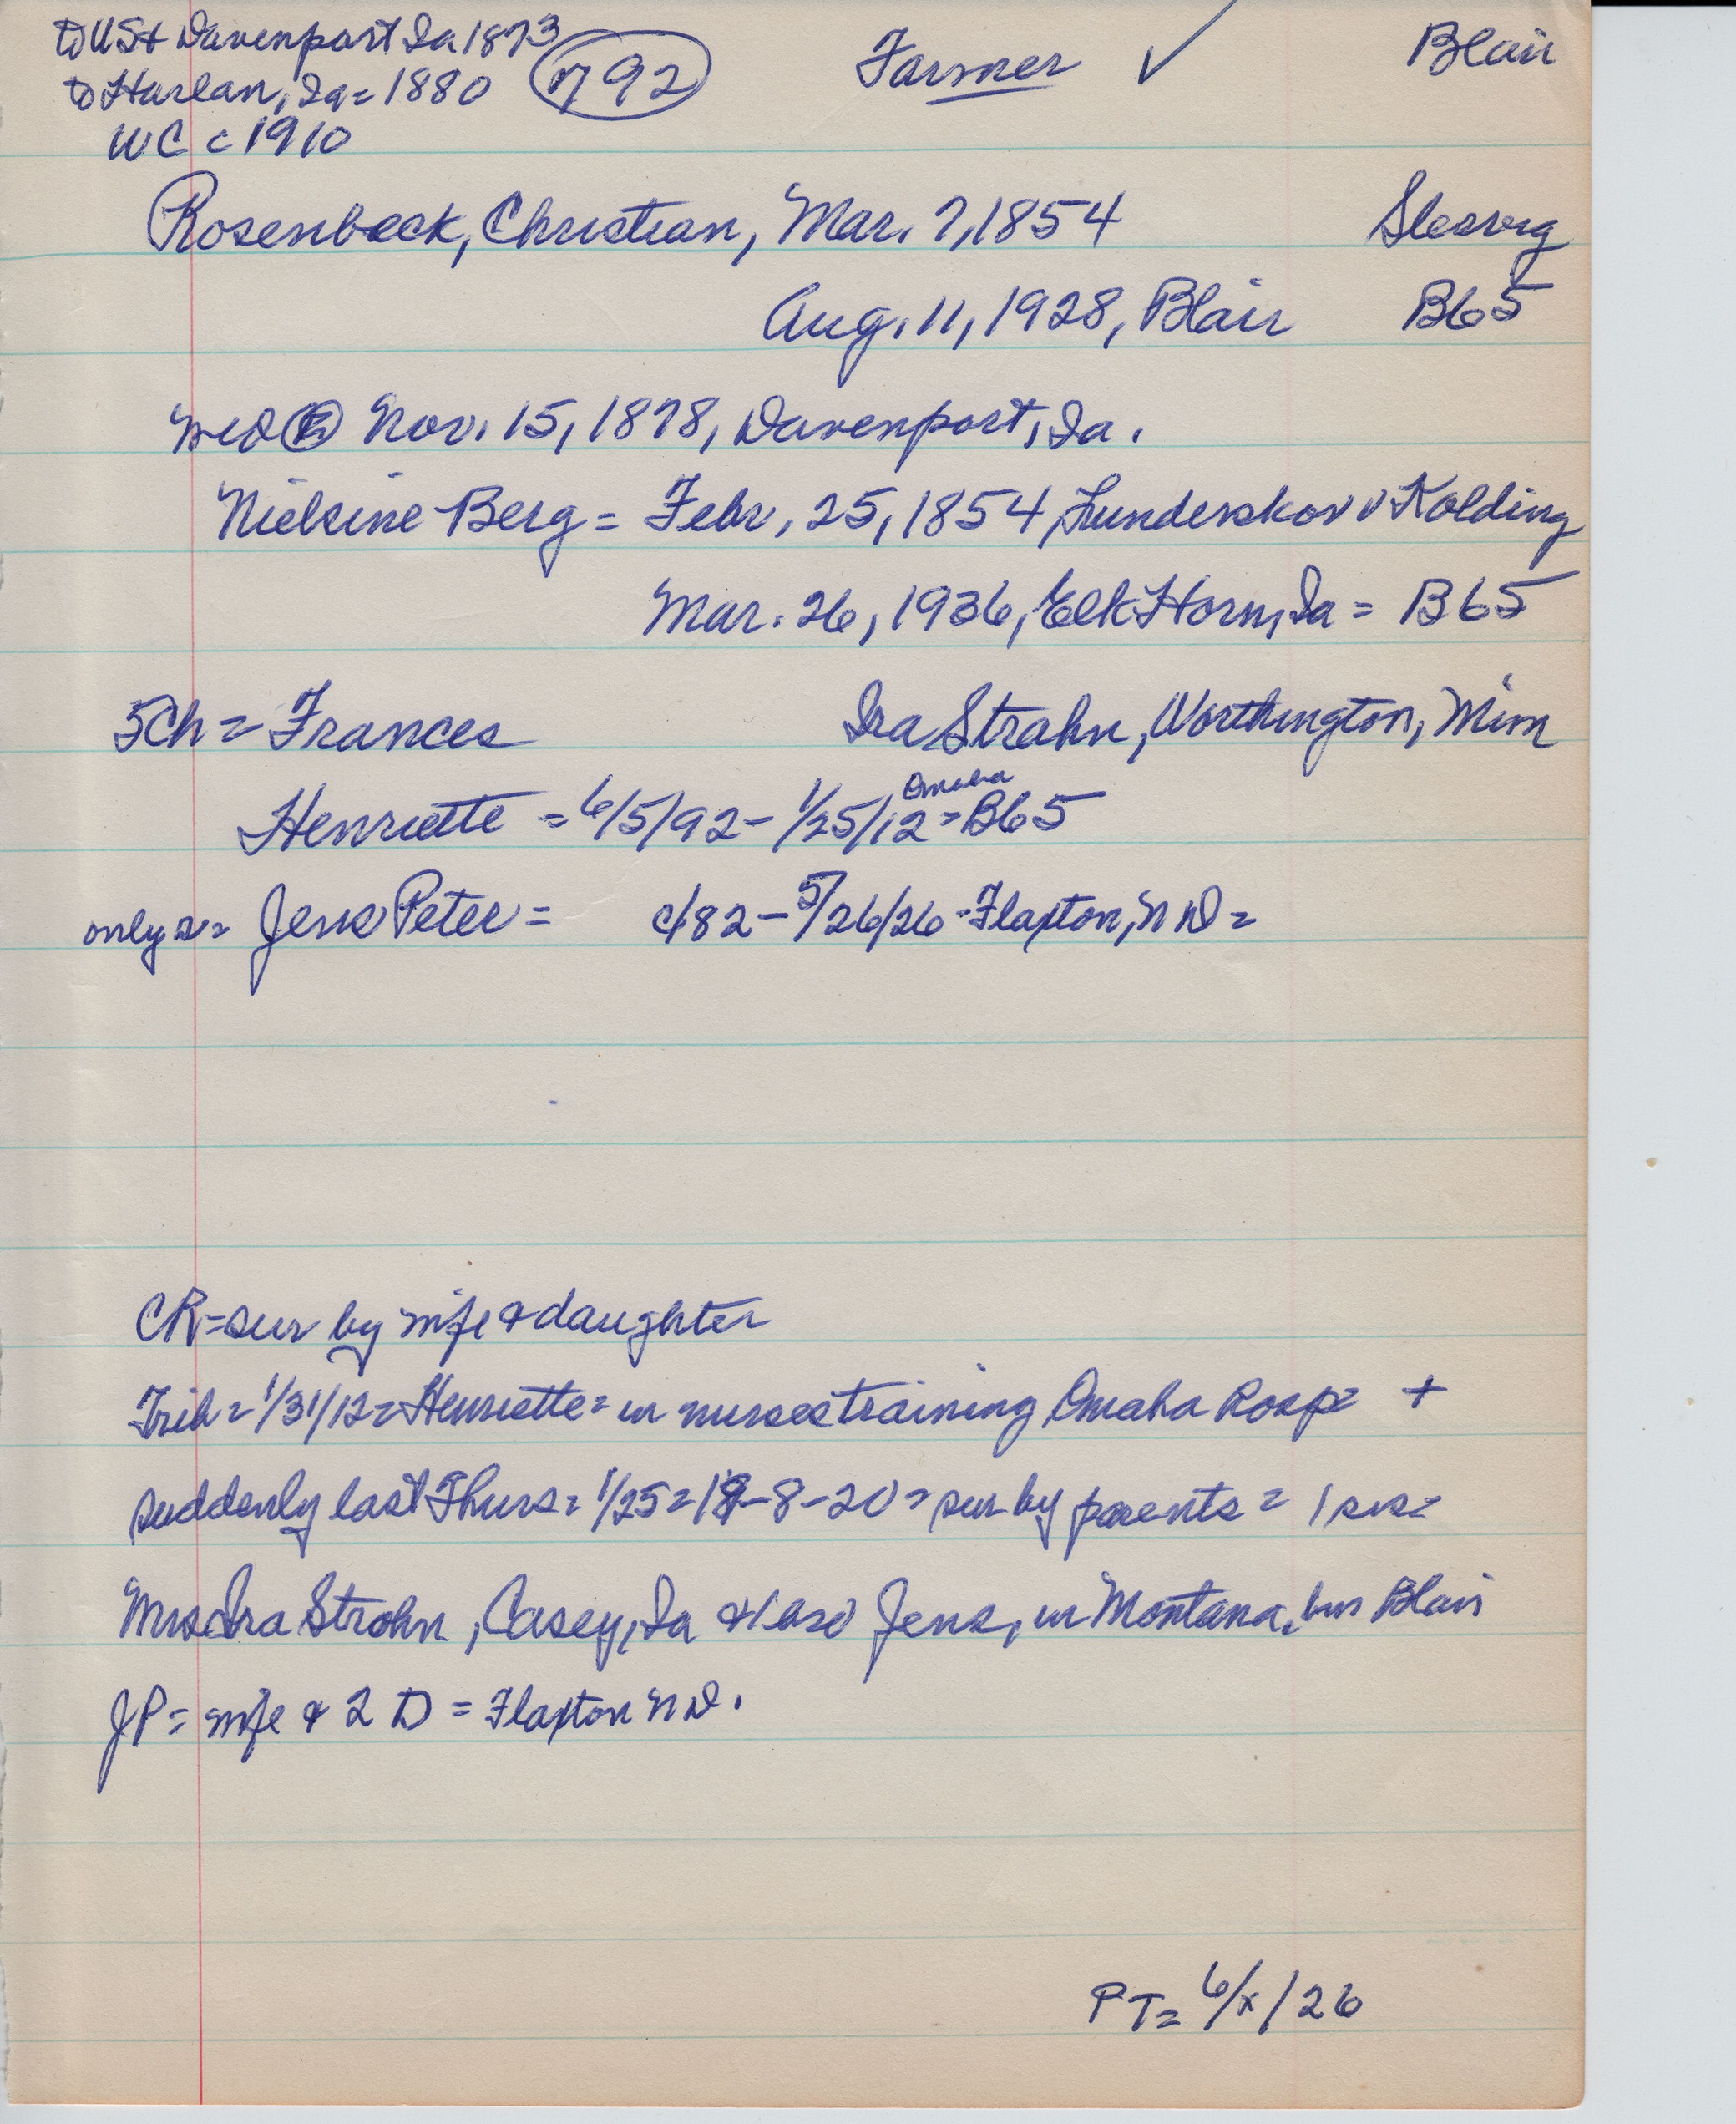 to US & Davenport Ia 1873
to Harlan, Ia = 1880
792
Farmer ✓
Blair
WC c 1910
Rosenbeck, Christian, Mar. 7, 1854 Slesvig
Aug. 11, 1928, Blair B65
Nov. 15, 1878, Davenport, Ia.
Nielsine Berg = Febr. 25, 1854, Lunderskov v Kolding
Mar. 26, 1936, Elk Horn, Ia = B65
5 Ch = Frances Ira Strahn, Worthington, Minn
Omaha
Henriette = 6/5/92 - 1/25/12 = B65
only s = Jens Peter = c/82 - 5/26/26 - Flaxton, ND =
CR = sur by wife & daughter
Trib = 1/31/12 = Henriette = in nurses training Omaha Hosp = +
suddenly last Thurs = 1/25 = 19-8-20 = sur by parents = 1 sis =
Mrs Ira Strohn, Casey, Ia & 1 bro Jens, in Montana, bur Blair
JP = wife & 2 D = Flaxton ND.
PT = 6/x/26